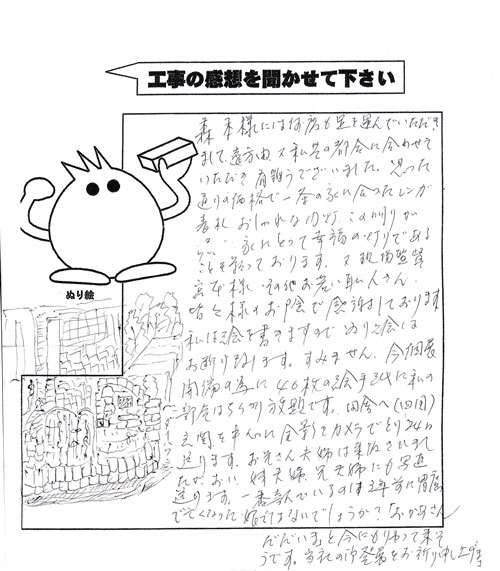 工事の感想を聞かせて下さい
森本様には何度も足を運んでいただき
まして、遠方由、又私共の都合に合わせて
いただき有難うございました。思った
通りの価格で一番の家に合ったレンガ
表札、おしゃれな門灯、この灯りが
家にとって幸福の灯りである
ことを祈っております。又現場監督
宮本様、その他お若い職人さん、
皆々様のお陰で感謝しております
私は絵を書きますのでぬり絵は
お断り致します。すみません。今個展
開催の為に40枚の絵
放題です。田舎へ(四国)
玄関を中心に全景をカメラでとり
送ります。お兄さん夫婦は来阪されまし
たが、おい、姉夫婦、兄夫婦にも写真
送ります。一番喜んでいるのは3年前に胃癌
で亡くなった娘ではないでしょうか?「おかあさん
ただいま」と今にも帰って来そ
うです。当社の御発展をお祈り申し上げます
ぬり絵